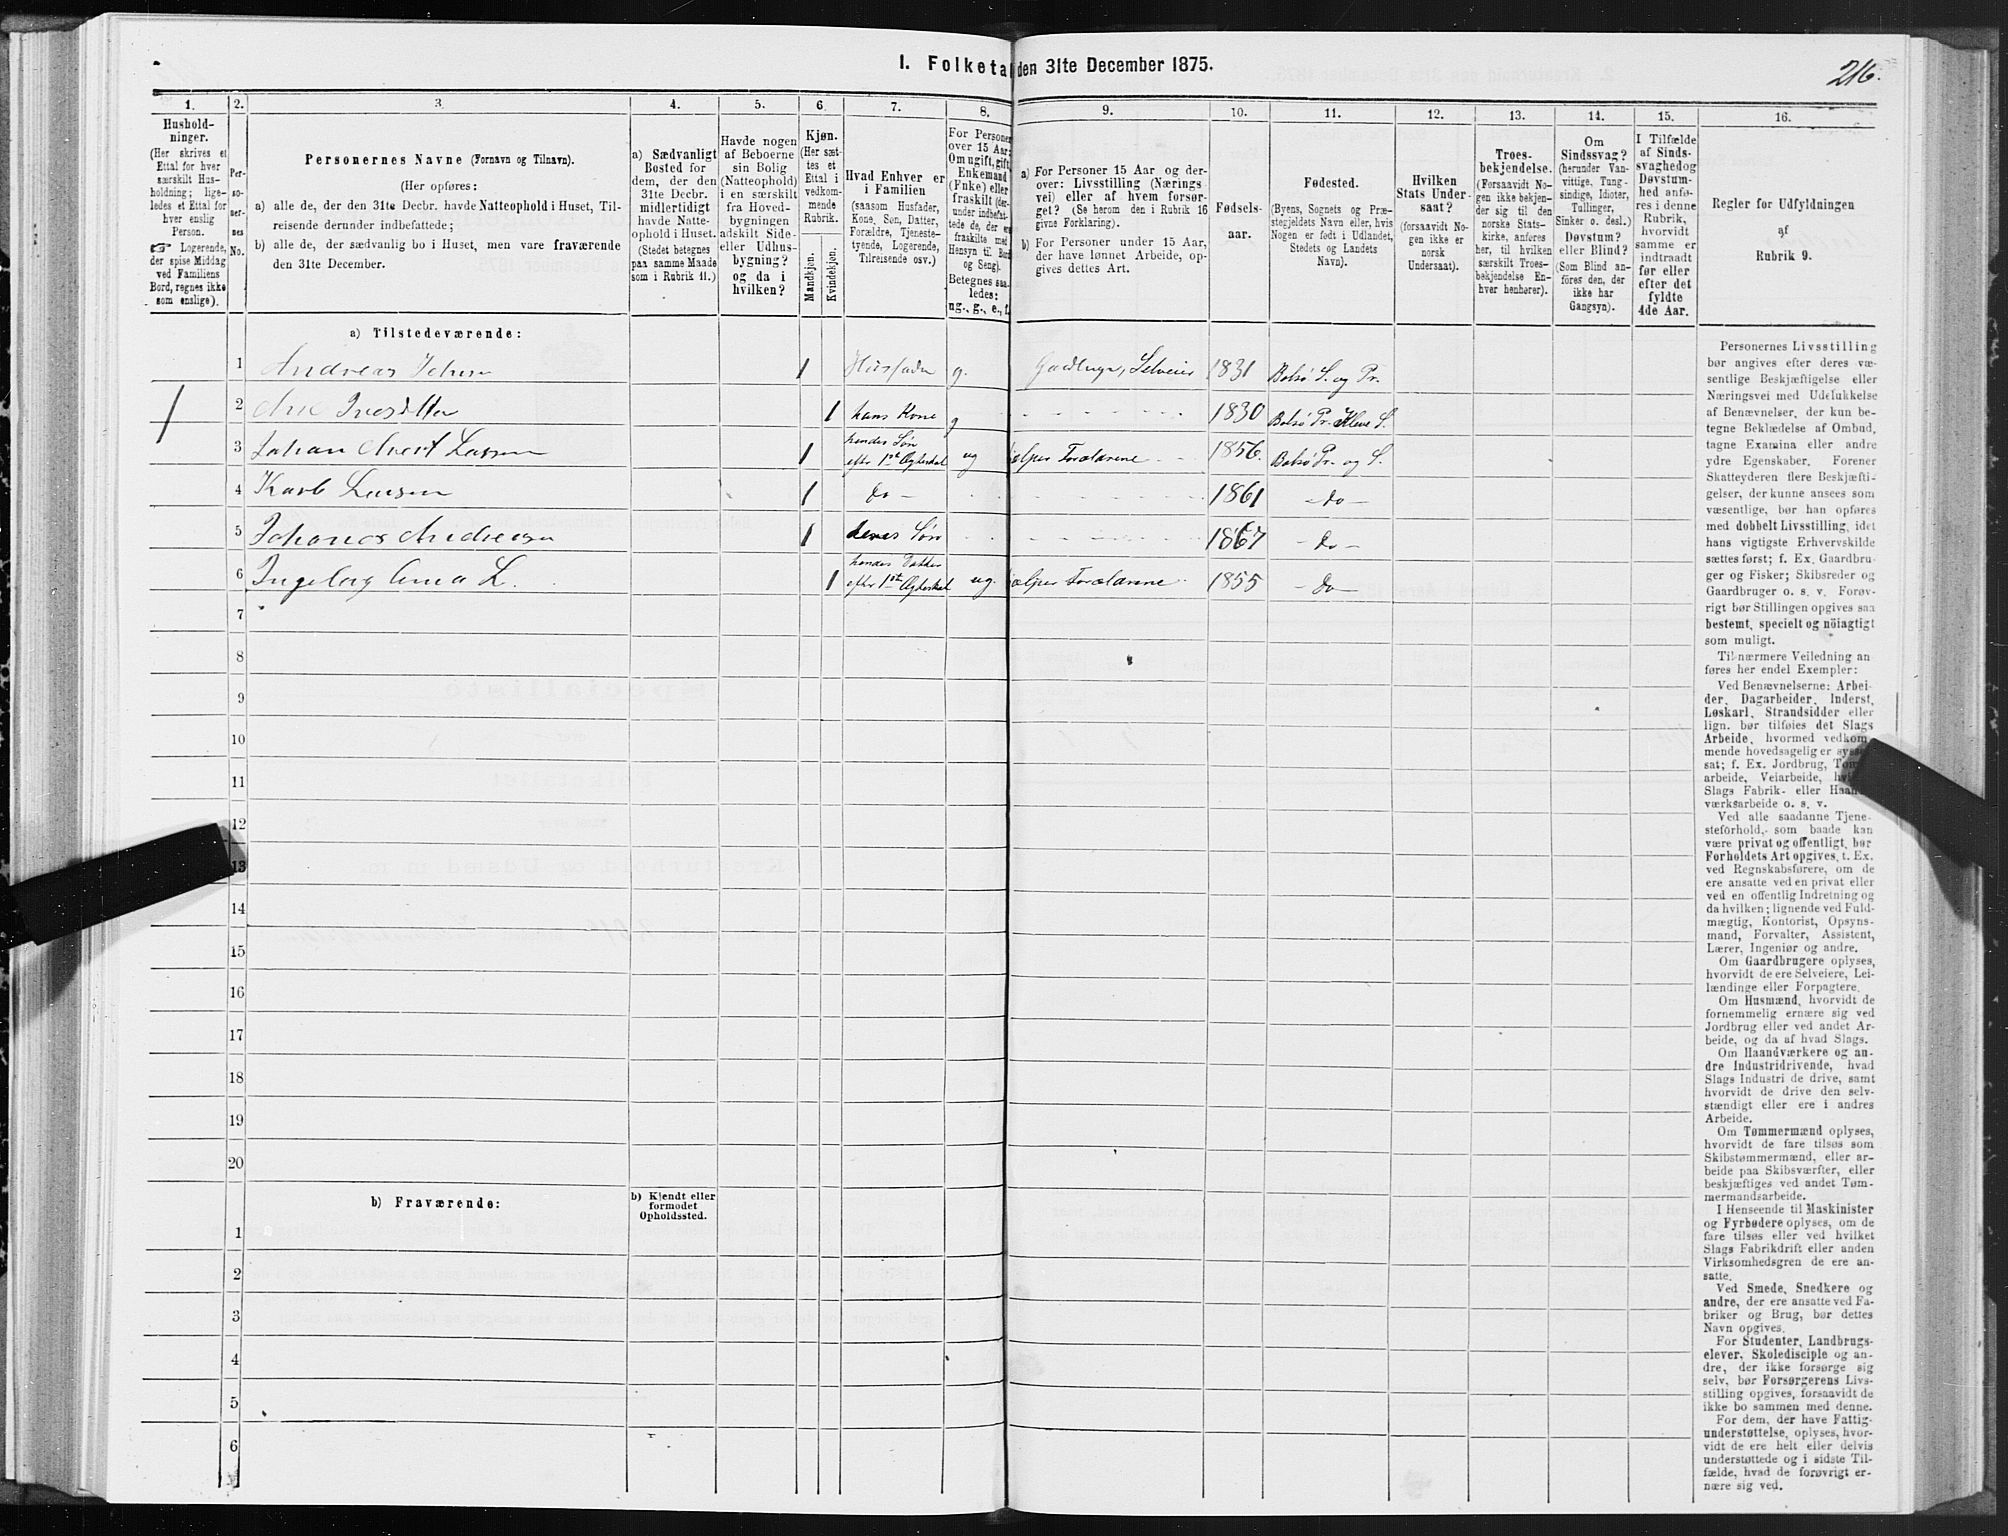 I. Folketal den 31te December 1875.
216.
1.
2.
3.
4.
5.
6.
7.
8.
9.
10.
11.
12.
13.
14.
15.
16.
Hushold-
ninger.
(Her skrives et
Ettal for hver
særskilt Hus-
holdning; lige-
ledes et Ettal for
hver enslig
Person.
☞ Logerende,
der spise Middag
ved Familiens
Bord, regnes ikke
som enslige).
Per-
so-
ner-
nes
No.
Personernes Navne (Fornavn og Tilnavn).
(Her opføres:
a) alle de, der den 31te Decbr. havde Natteophold i Huset, Til-
reisende derunder indbefattede;
b) alle de, der sædvanlig bo i Huset, men vare fraværende
den 31te December.
a) Sædvanligt
Bosted for
dem, der den
31te Decbr.
midlertidigt
havde Natte-
ophold i Huset.
(Stedet betegnes
paa samme Maade
som i Rubrik 11.)
Havde nogen
af Beboerne
sin Bolig
(Natteophold)
i en særskilt
fra Hoved-
bygningen
adskilt Side-
eller Udhus-
bygning?
og da i
hvilken?
Kjøn.
(Her sæt-
tes et
Ettal i
vedkom-
mende
Rubrik.
Mandkjøn.
Kvindekjøn.
Hvad Enhver er
i Familien
(saasom Husfader,
Kone, Søn, Datter,
Forældre, Tjeneste-
tyende, Logerende,
Tilreisende osv.)
For Personer
over 15 Aar:
Om ugift, gift,
Enkemand
(Enke) eller
fraskilt (der-
under indbefat-
tede de, der ere
fraskilte med
Hensyn til Bord
og Seng).
Betegnes saa-
ledes:
ug., g., e., f.
a) For Personer 15 Aar og der-
over: Livsstilling (Nærings-
vei) eller af hvem forsør-
get? (Se herom den i Rubrik 16
givne Forklaring).
b) For Personer under 15 Aar,
der have lønnet Arbeide, op-
gives dettes Art.
Fødsels-
aar.
Fødested.
(Byens, Sognets og Præ-
stegjeldets Navn eller, hvis
Nogen er født i Udlandet,
Stedets og Landets
Navn).
Hvilken
Stats Under-
saat?
(forsaavidt No-
gen ikke er
norsk
Undersaat).
Troes-
bekjendelse.
(Forsaavidt No-
gen ikke bekjen-
der sig til den
norske Stats-
kirke, anføres
her, til hvilken
særskilt Troes-
bekjendelse En-
hver henhører).
Om
Sindssvag?
(herunder Van-
vittige, Tung-
sindige, Idioter,
Tullinger,
Sinker o. desl.)
Døvstum?
eller Blind?
(Som Blind an-
føres den, der
ikke har
Gangsyn).
I Tilfælde
af Sinds-
svaghed og
Døvstum-
hed anfø-
res i denne
Rubrik,
hvorvidt
samme er
indtraadt
før eller
efter det
fyldte
4de Aar.
Regler for Udfyldningen
af
Rubrik 9.
a) Tilstedeværende:
1 Andreas Johnsen 1 Husfader g. Gaardbruger, Selveier 1831 Bolsø S. og Pr.
1
2 1 hans Kone g 1830 Bolsø Pr. Kleve S.
3 Johan Larsen 1 hendes Søn efter 1ste Ægteskab ug hjelper Forældrene 1856. Bolsø Pr. og S.
4 Karl Larsen 1 do - 1861 - do -
5 Johanes Andreasen 1 deres Søn 1867 - do -
6 Ingeborg Anna L. 1 hendes Datter efter 1ste Ægteskab ug. hjelper Forældrene 1855 - do -
7
8
9
10
11
12
13
14
15
16
17
18
19
20
b) Fraværende:
b) Kjendt eller
formodet
Opholdssted.
1
2
3
4
5
6
Personernes Livsstilling
bør angives efter deres væ-
sentlige Beskjæftigelse eller
Næringsvei med Udelukkelse
af Benævnelser, der kun be-
tegne Beklædelse af Ombud,
tagne Examina eller andre
ydre Egenskaber. Forener
Skatteyderen flere Beskjæfti-
gelser, der kunne ansees som
væsentlige, bør han opføres
med dobbelt Livsstilling, idet
hans vigtigste Erhvervskilde
sættes først; f. Ex. Gaardbru-
ger og Fisker; Skibsreder og
Gaardbruger o. s. v. Forøv-
rigt bør Stillingen opgives saa
bestemt, specielt og nöiagtigt
som muligt.
Til nærmere Veiledning an-
føres her endel Exempler:
Ved Benævnelserne: Arbei-
der, Dagarbeider, Inderst,
Løskarl, Strandsidder eller
lign. bør tilføies det Slags
Arbeide, hvormed vedkom-
mende hovedsagelig er syssel-
sat; f. Ex. Jordbrug, Tomt-
arbeide, Veiarbeide, hvilket
Slags Fabrik- eller Haand-
værksarbeide o. s. v.
Ved alle saadanne Tjene-
steforhold, som baade kan
være privat og offentligt, bør
Forholdets Art opgives, t. Ex.
ved Regnskabsførere, om de
ere ansatte ved en privat eller
ved en offentlig Indretning og
da hvilken; lignende ved Fuld-
mægtig, Kontorist, Opsyns-
mand, Forvalter, Assistent,
Lærer, Ingeniør og andre.
Om Gaardbrugere oplyses,
hvorvidt de ere Selveiere, Lei-
lændinge eller Forpagtere.
Om Husmænd, hvorvidt de
fornemmelig ernære sig ved
Jordbrug eller ved andet Ar-
beide, og da af hvad Slags.
Om Haandværkere og an-
dre Industridrivende, hvad
Slags Industri de drive, samt
hvorvidt de drive den selv-
stændigt eller ere i andres
Arbeide.
Om Tømmermænd oplyses,
hvorvidt de fare tilsøs som
Skibstømmermænd, eller ar-
beide paa Skibsværfter, eller
beskjæftiges ved andet Tøm-
mermandsarbeide.
I Henseende til Maskinister
og Fyrbødere oplyses, om de
fare tilsøs eller ved hvilket
Slags Fabrikdrift eller anden
Virksomhedsgren de ere an-
satte.
Ved Smede, Snedkere og
andre, der ere ansatte ved Fa-
briker og Brug, bør dettes
Navn opgives.
For Studenter, Landbrugs-
elever, Skoledisciple og an-
dre, der ikke forsørge sig
selv, bør Forsørgerens Livs-
stilling opgives, forsaavidt de
ikke bo sammen med denne.
For dem, der have Fattig-
understøttelse, oplyses, hvor-
vidt de ere helt eller delvis
understøttede og i sidste Til-
fælde, hvad de forøvrigt er-
nære sig ved.